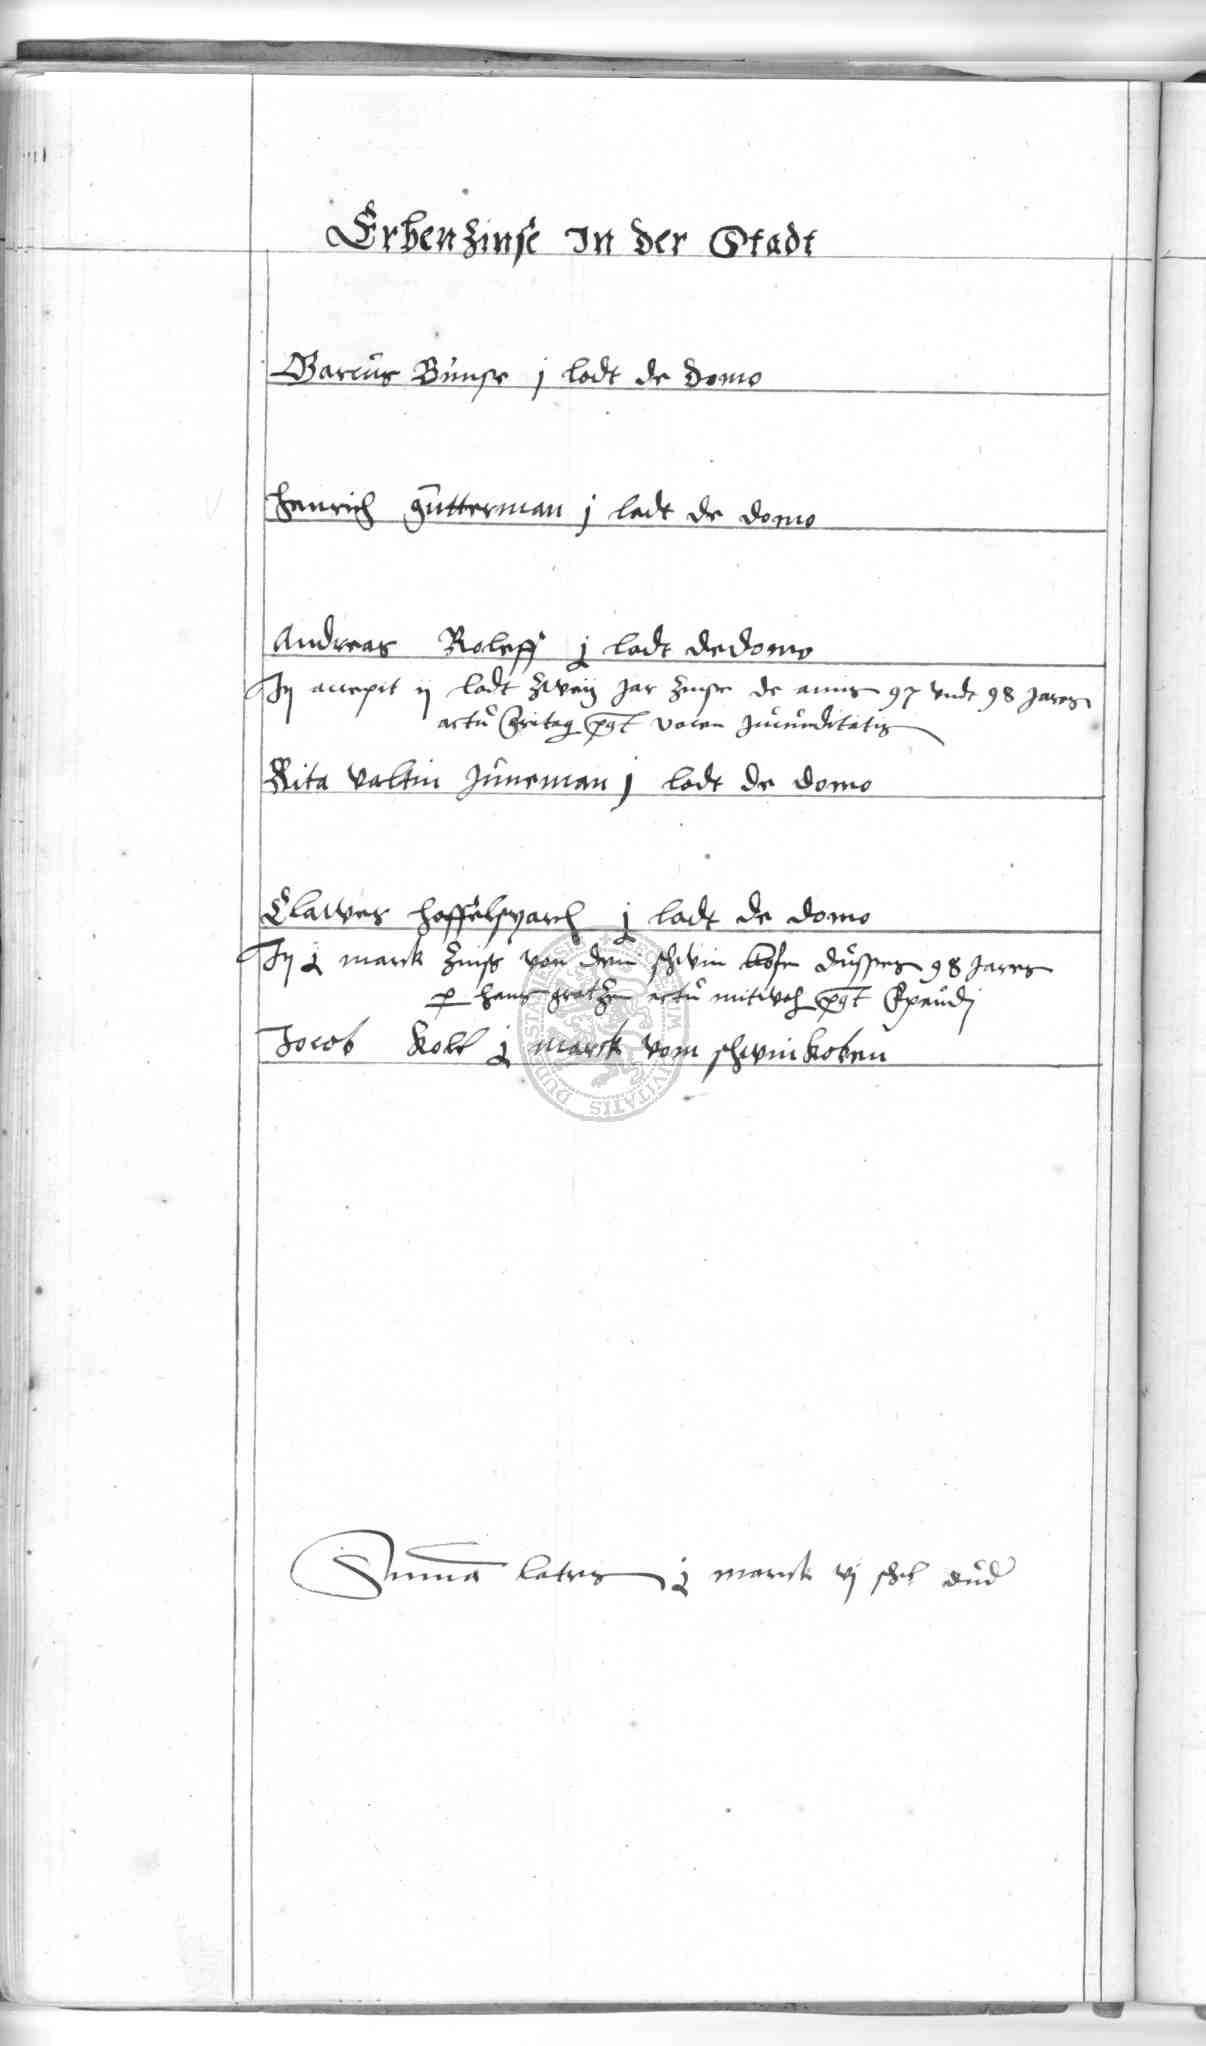 Erbenzinse In der Stadt
Marcus Bunse j lodt de domo
Henrich gutterman j lodt de domo
Andreas Roleff j lodt de domo
Tj accepit ij lodt zweij Jar zinse de annis 97 undt 98 Jares
actu freitag post vocem Jucunditatis
Rita Valtin Juneman j lodt de domo
Clawes Hoffelsparch j lodt de domo
Tj j marck zinss von dem schwin kofe dusses 98 Jares
p hans actu mitwoch post Exaudj
Jocob Kolf j marck vom schwinkoben
Summa lateris j marck vj schl dud